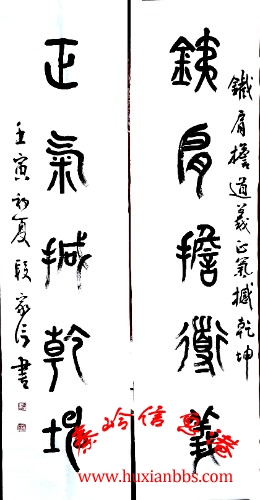 鐵肩擔道義正氣撼乾坤
銕肩擔道義
正氣撼乾坤
壬寅初夏段家信書
www.huxianbbs.com